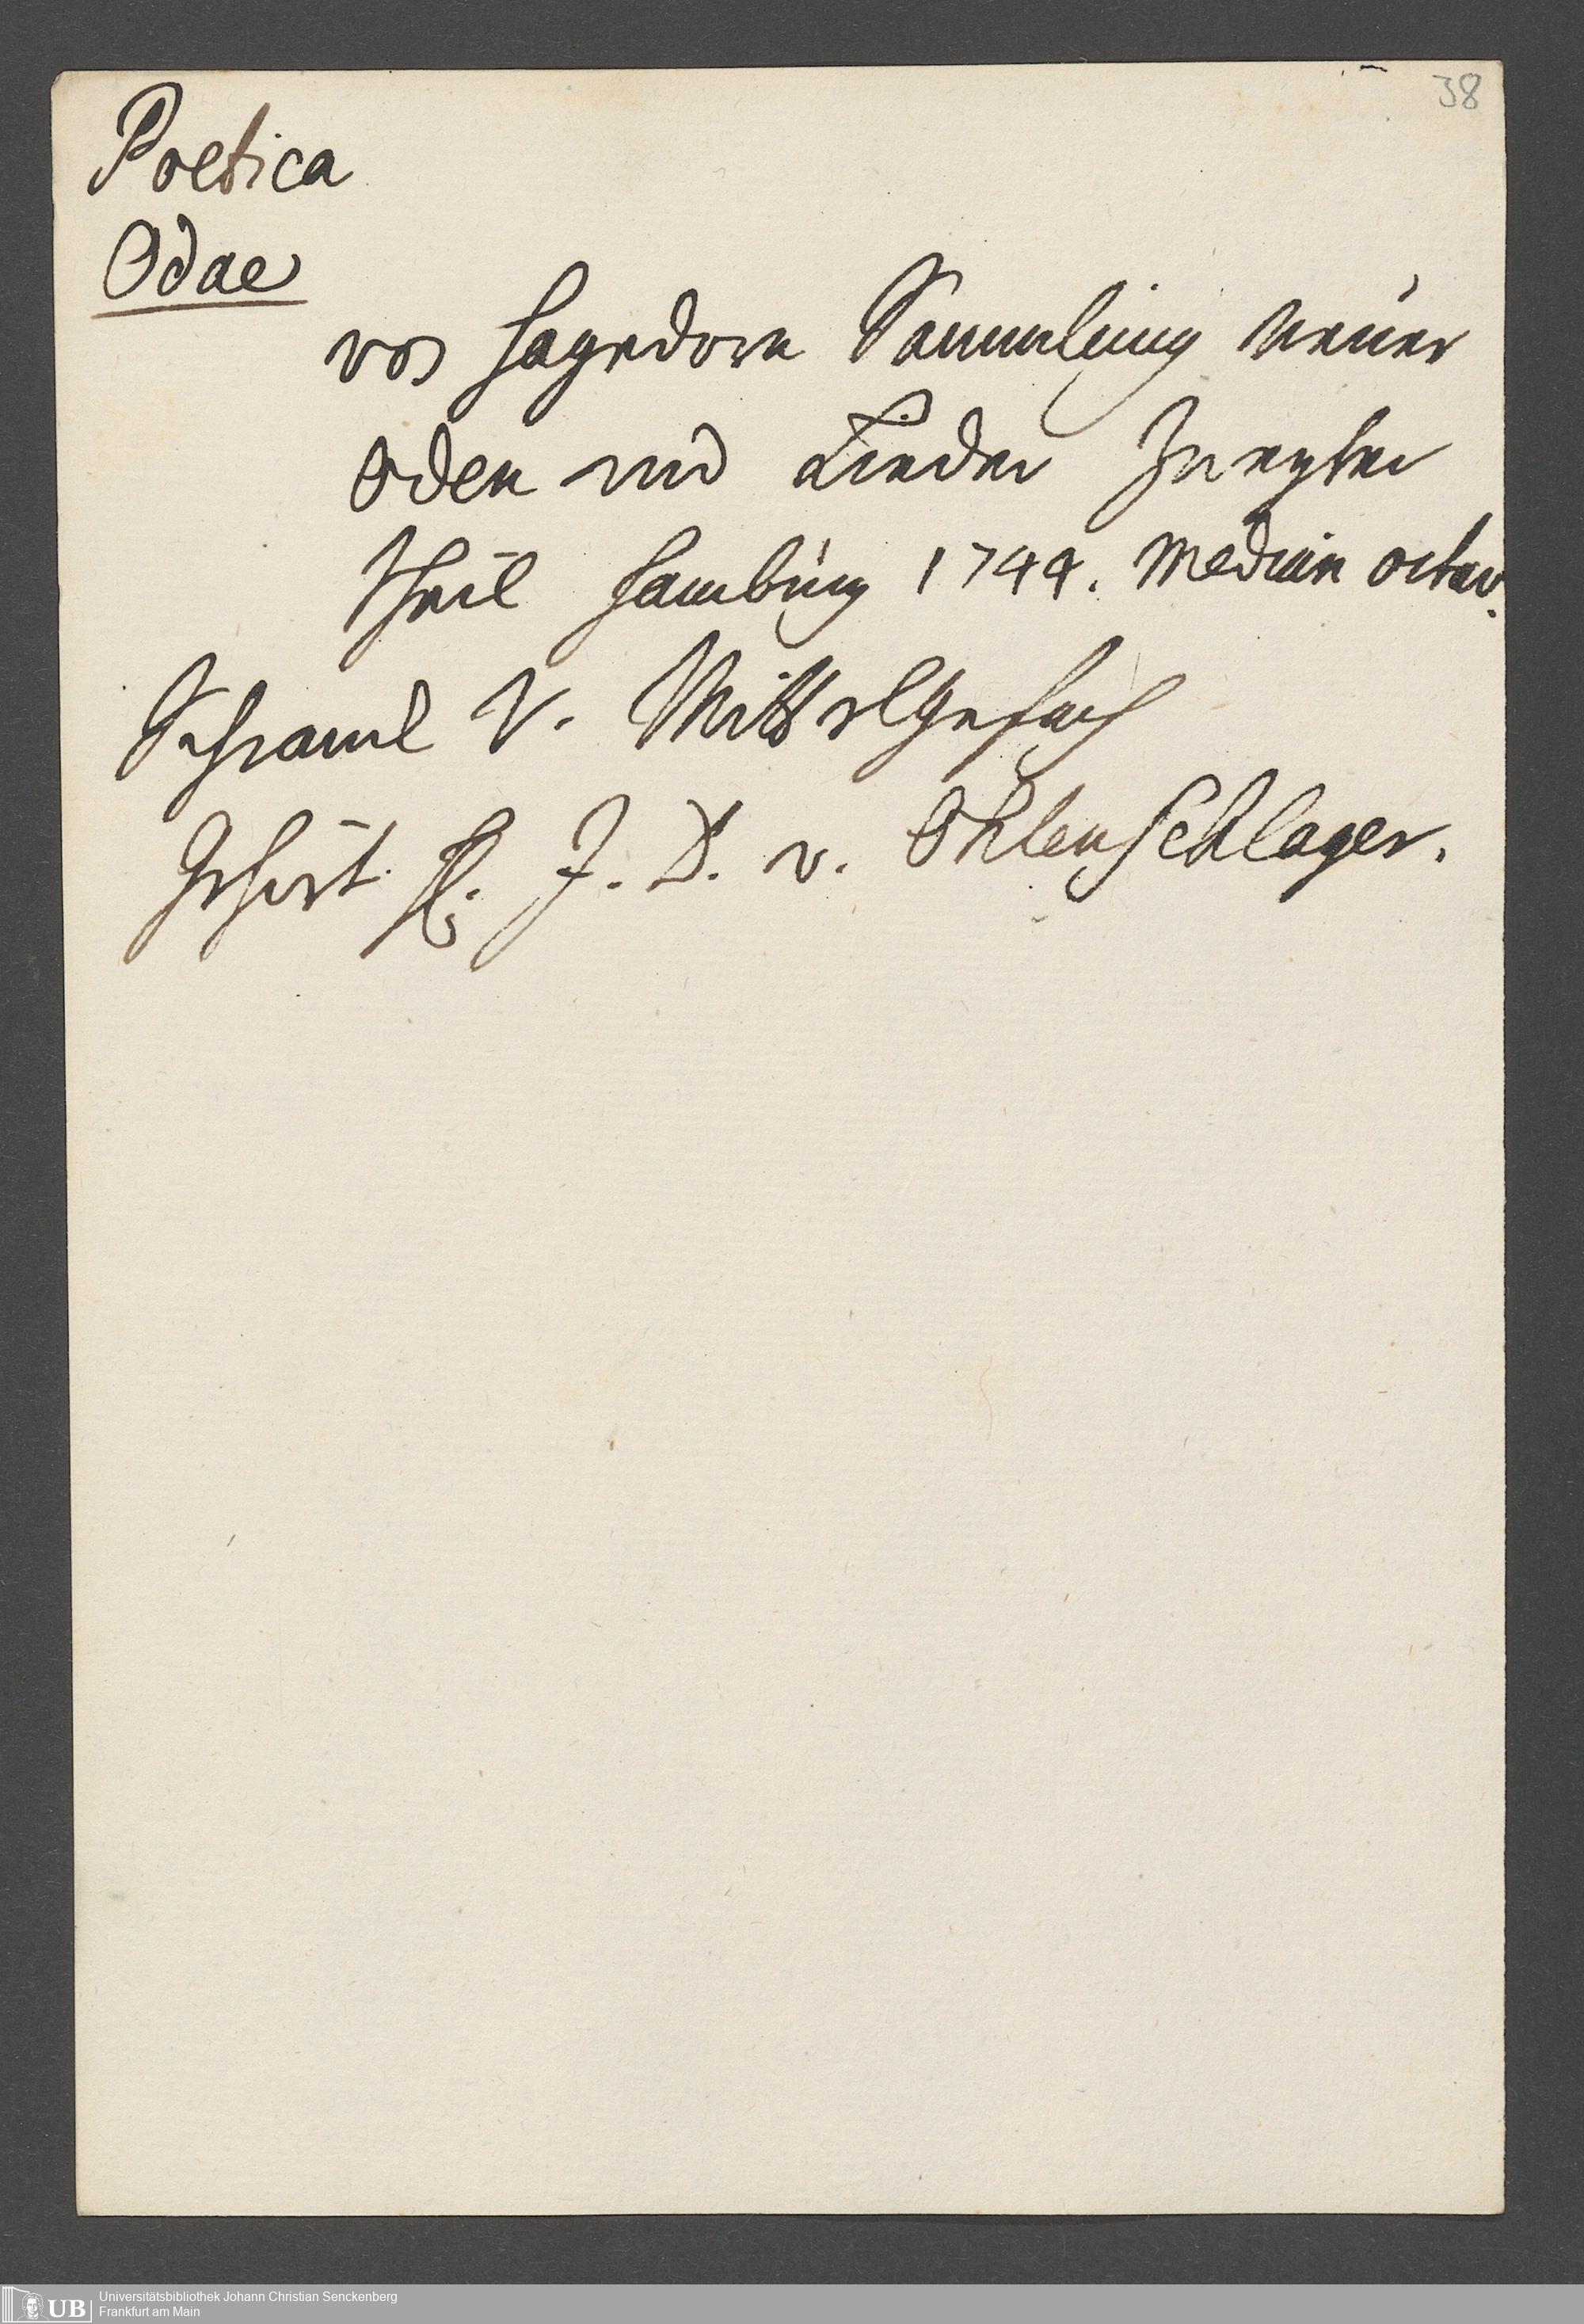 38
Poetica
Odae
von Hagedorn Sammlung neuer
Oden und Lieder Zweyter
Theil Hamburg 1744. Median octav.
V. Mittelgefach
Gehört H. J. D. v. Ohlenschlager.
UB Universitätsbibliothek Johann Christian Senckenberg
Frankfurt am Main